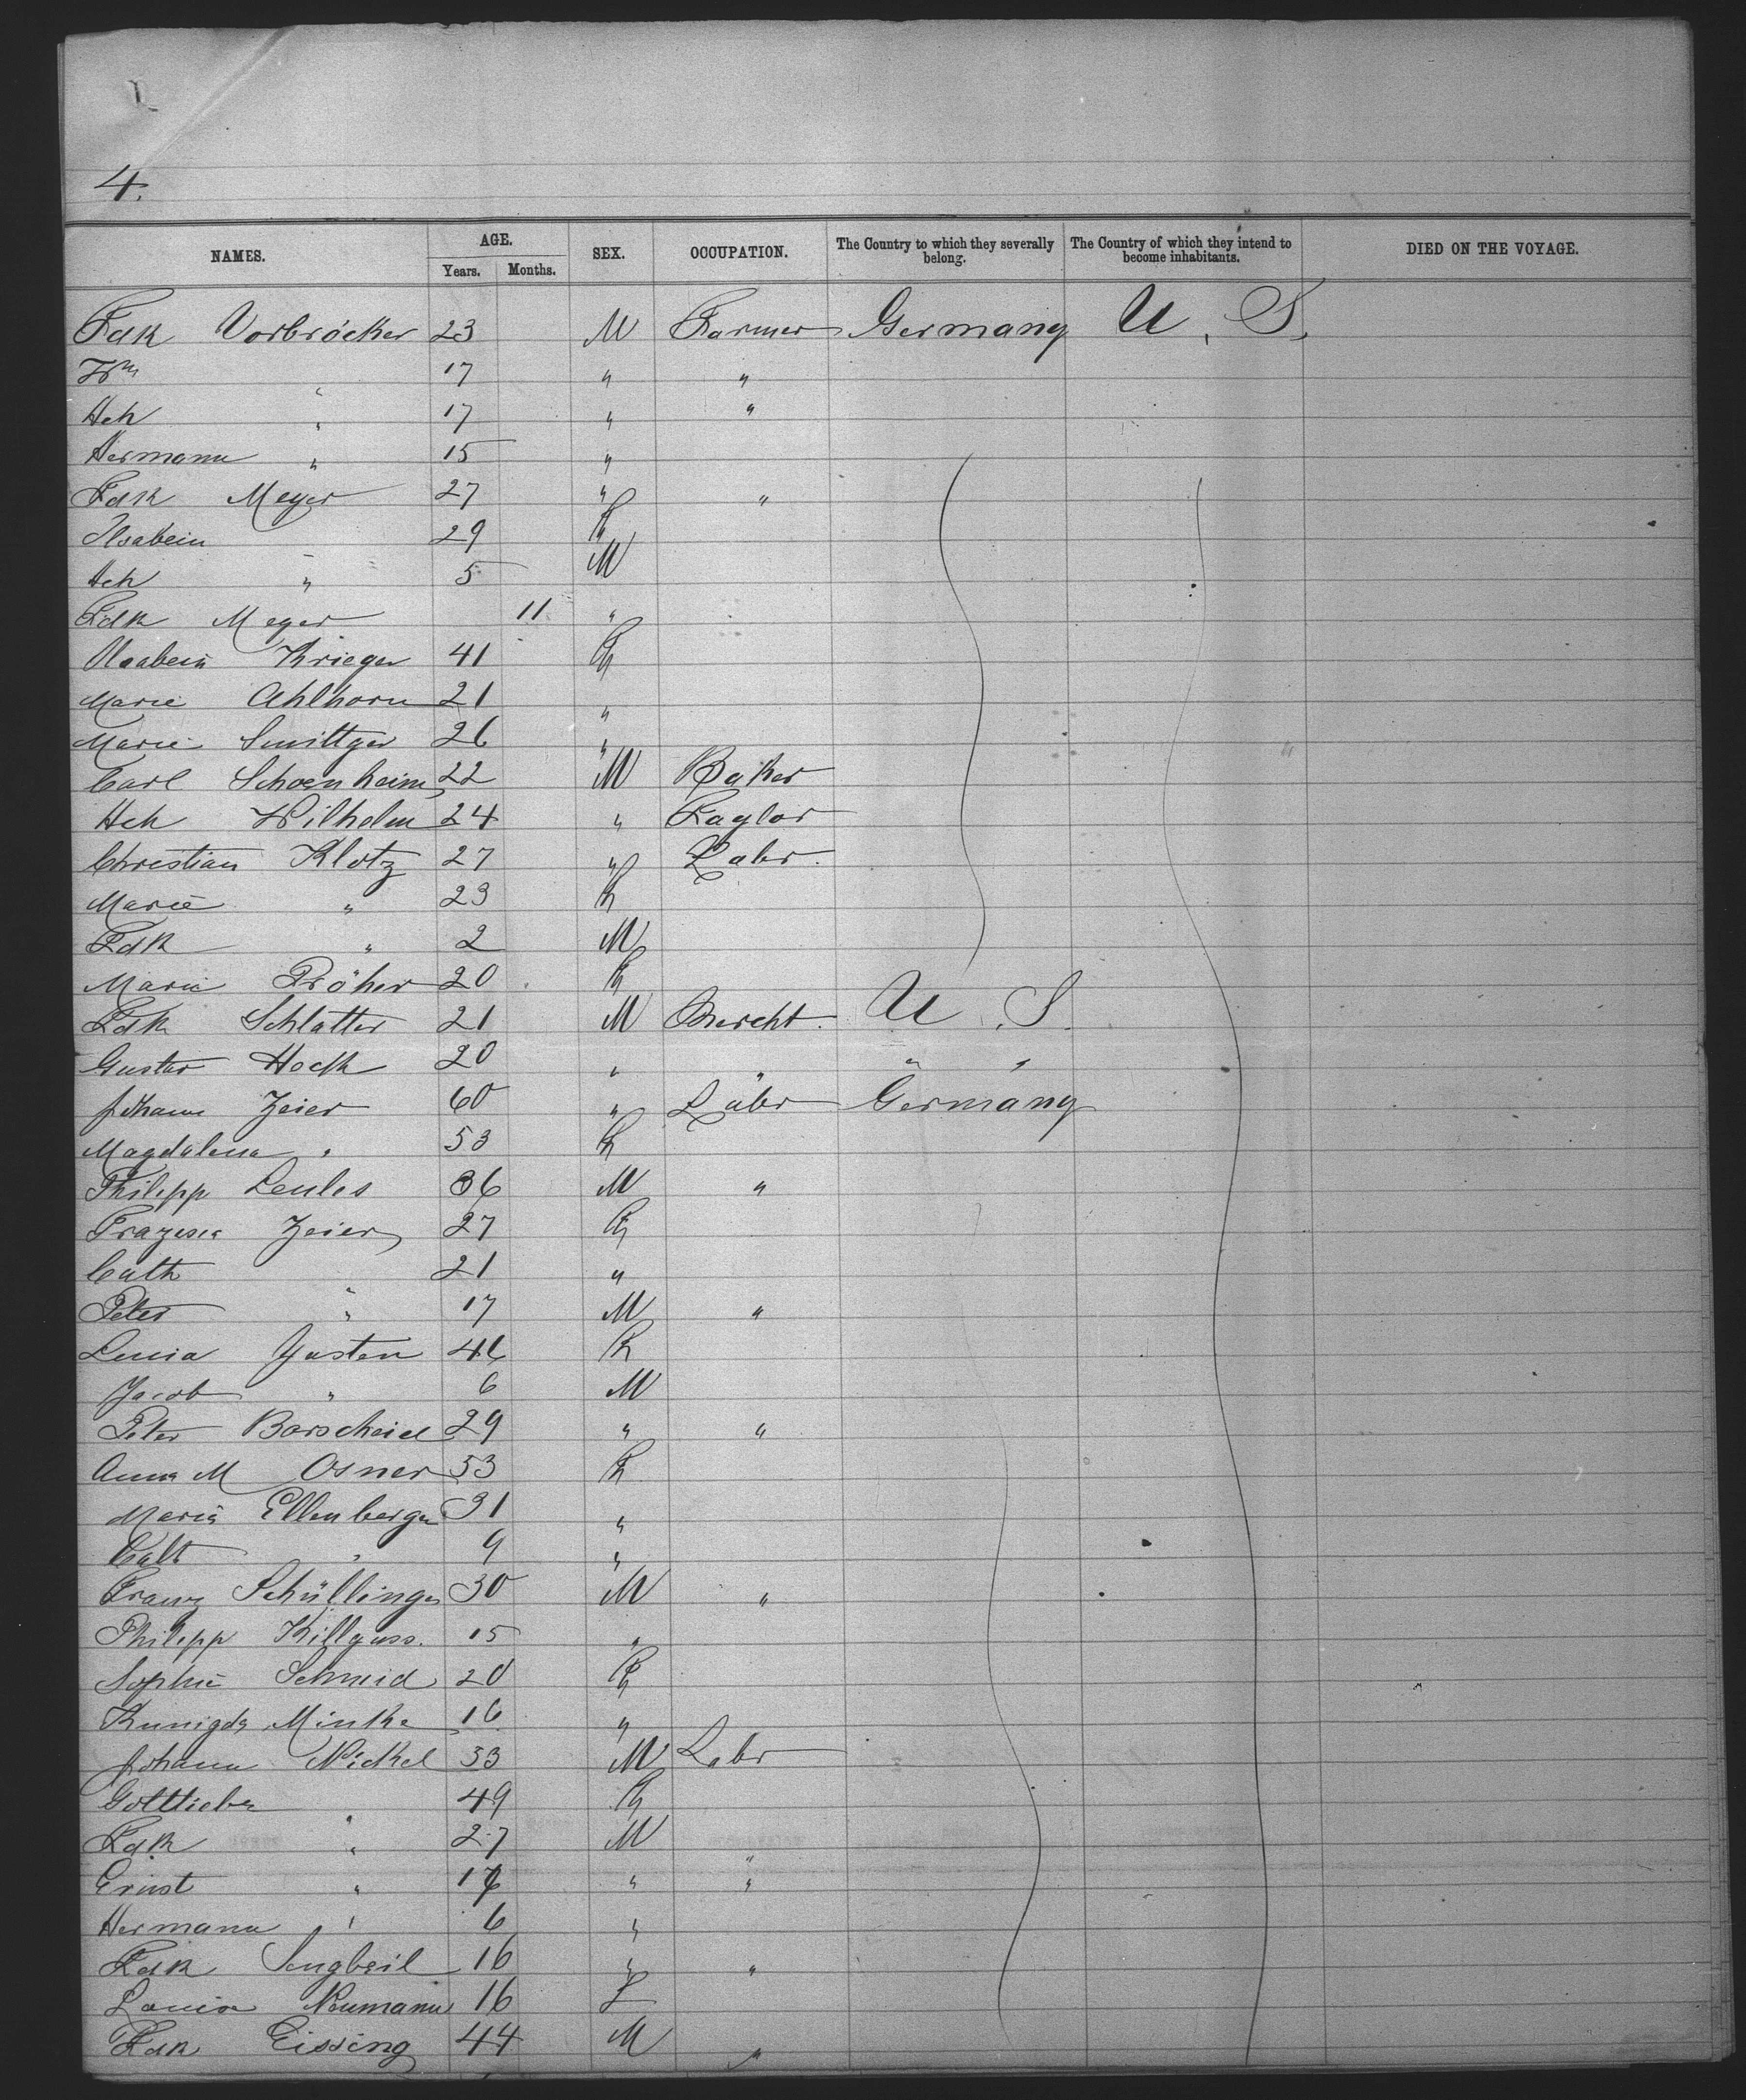 4.
NAMES. AGE. Years. Months. SEX. OCCUPATION. The Country to which they severally belong. The Country of which they intend to become inhabitants. DIED ON THE VOYAGE.
Fdk Vorbröcker 23 M Farmer Germany U. S.
Wm " 17 " "
Hch " 17 " "
Hermann " 15 "
Fdk Meyer 27 " "
Ilsabein " 29 F
Hch " 5 M
Fdk Meyer 11 "
Ilsabein Krieger 41 F
Marie Ahlhorn 21 "
Marie 26 "
Carl Schoenheim 22 M Baker
Hch Wilhelm 24 " Taylor
Christian Klotz 27 " Labr.
Marie " 23 F
Fdk " 2 M
Marie Pröher 20 F
Fdk Schlatter 21 M Mercht. U. S.
Gustav Hock 20 " " " "
Johann Zeier 60 " Labr Germany
Magdalena " 53 F
Philipp Leules 36 M "
Zeier 27 F
Cath " 21 "
Peter " 17 M "
Justen 46 F
Jacob " 6 M
Peter Borscheid 29 " "
Anna M Osner 53 F
Maria Ellenberger 31 "
" 9 "
Franz Schüllinger 30 M "
Philipp Killguss. 15 "
Sophie Schmid 20 F
Kunigda Minke 16 "
Johann Nickel 53 M Labr
Gottliebe " 49 F
Fdk " 27 M "
Ernst " 17 " "
Hermann " 6 "
Fdk Sengbeil 16 " "
Louise Neumann 16 F
Fdk Eissing 44 M "